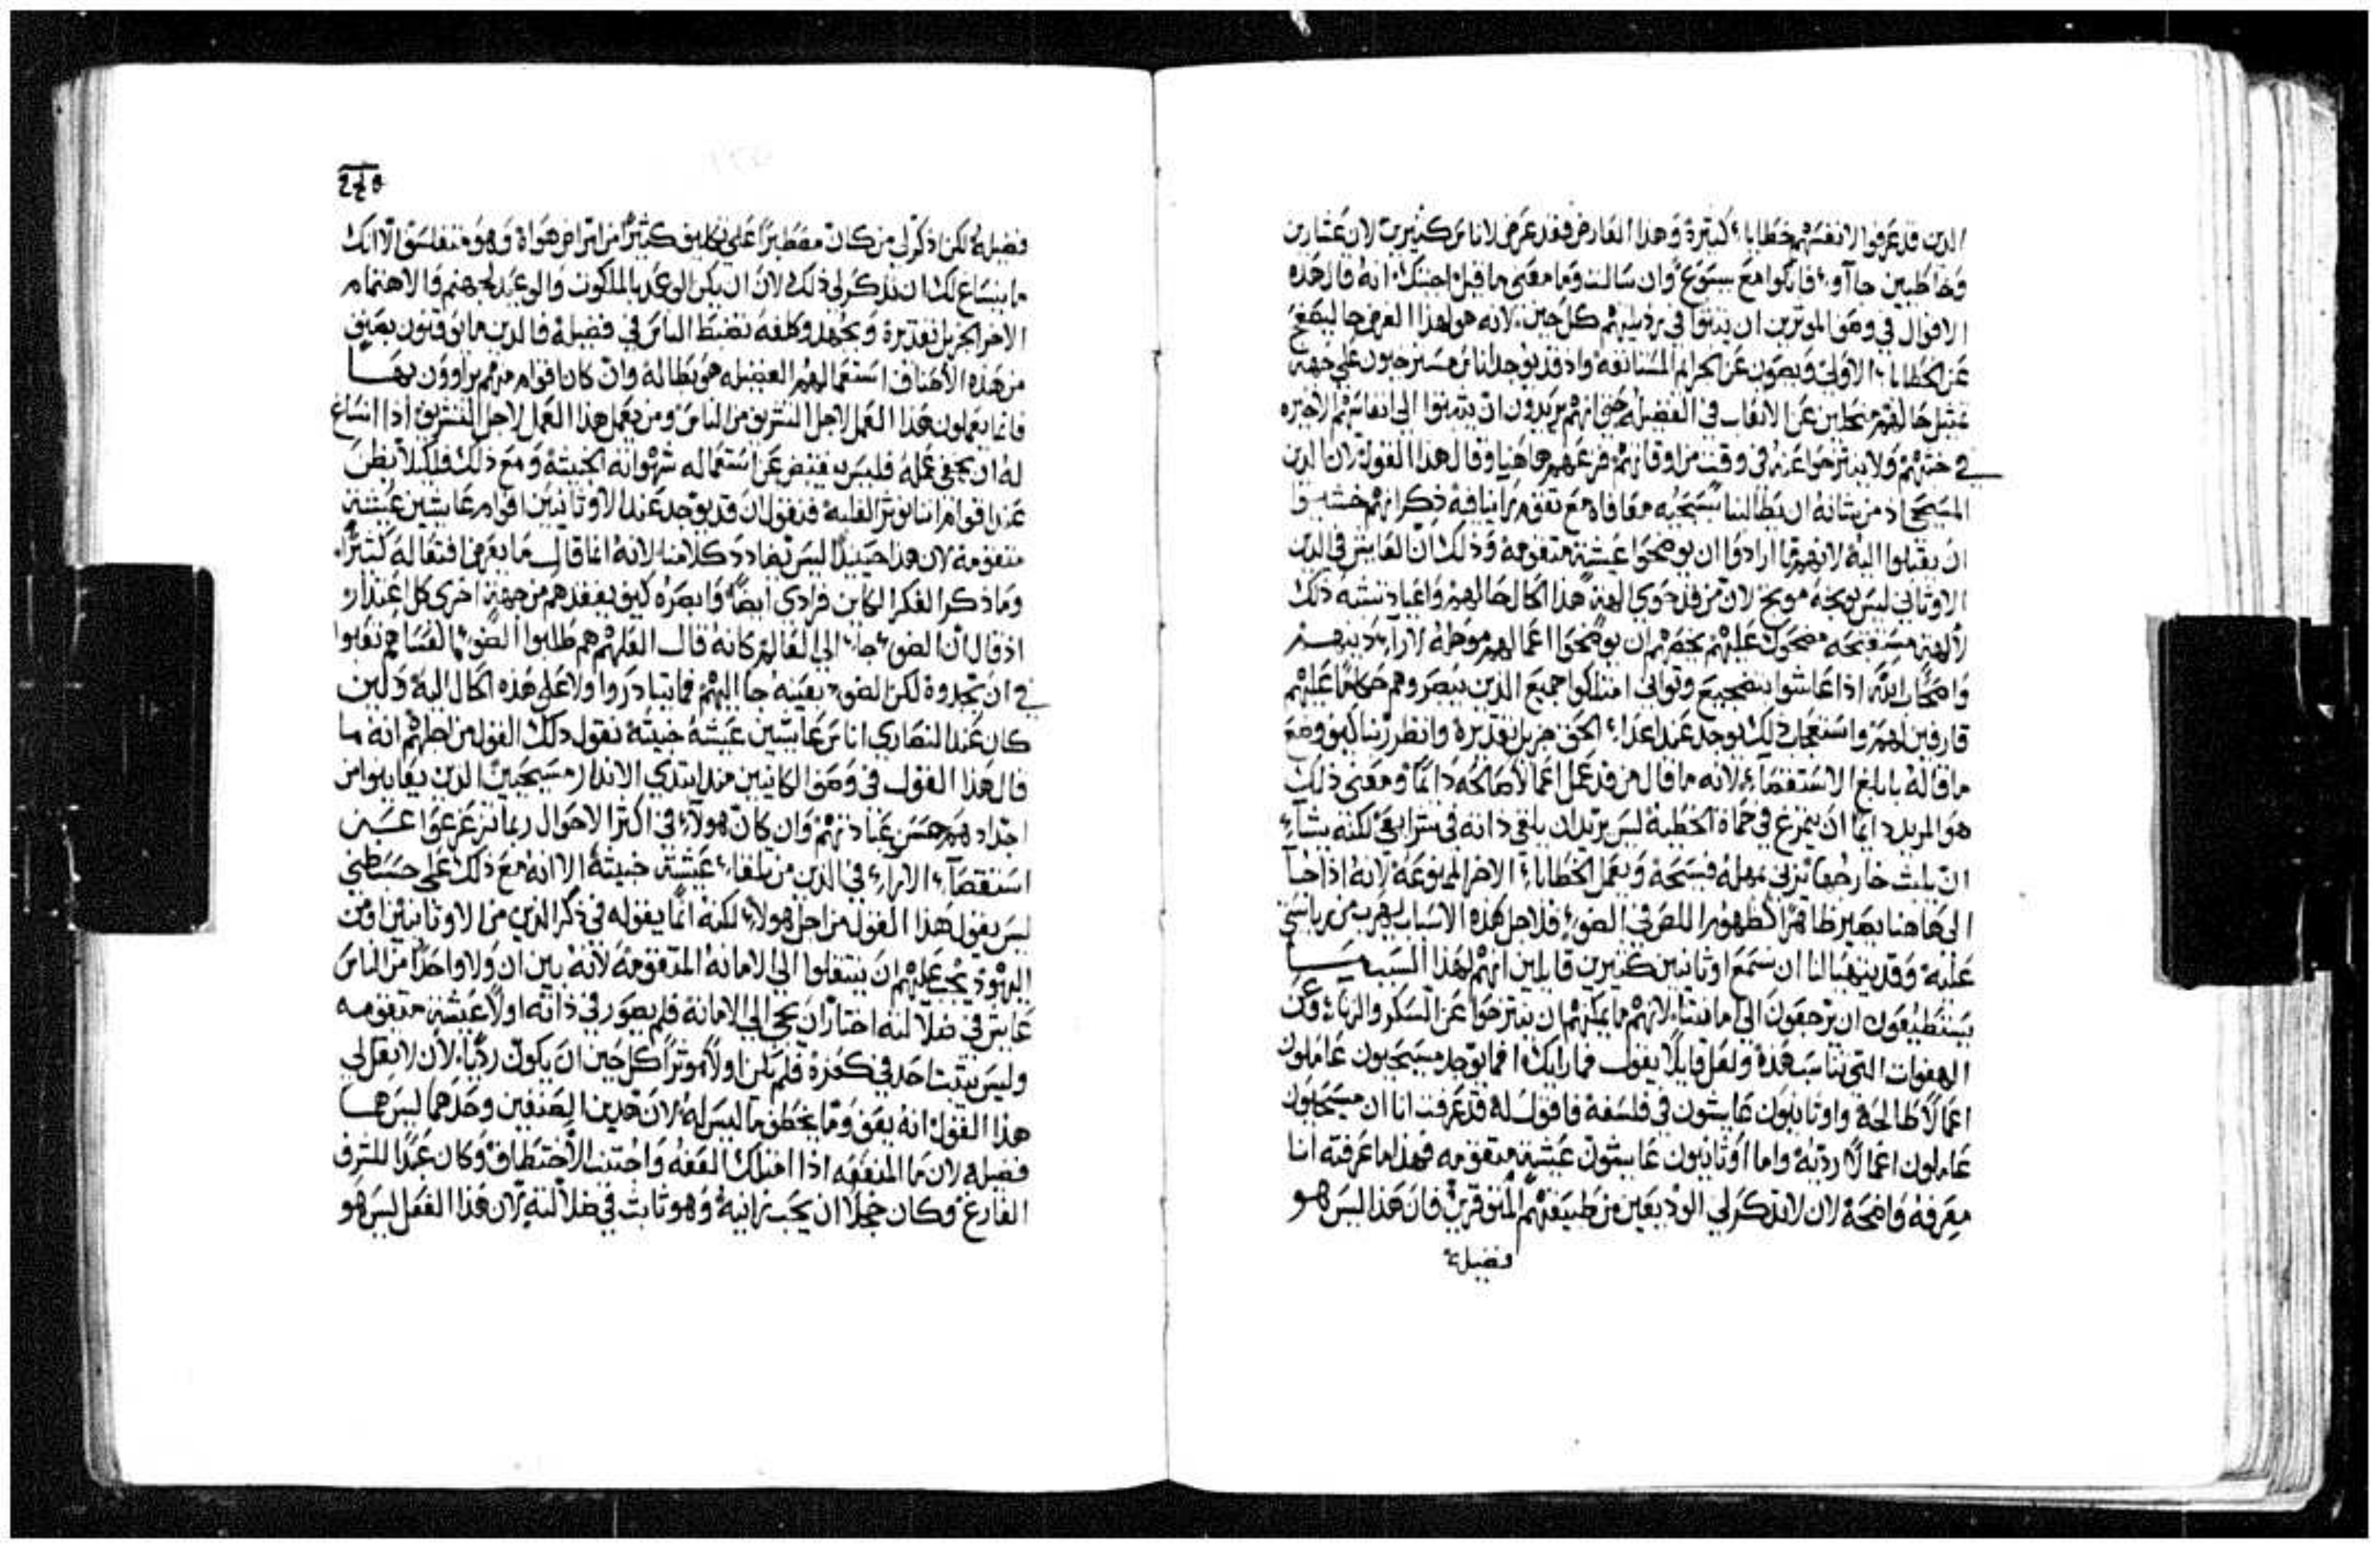 الدين قد عرفوا لانفسهم خطايا كبيرة وهذا العارض فقد عرض لاناس كثيرين لان عشارين
وخاطيين جاآوا فاتكوا مع يسوع وان سالت وما معنى ما قيل اجبتك انه قال هذه
الاقوال في وصف الموثرين ان يثبتوا في رذيلتهم كل حين لانه هو لهذا الغرض جا ليصفح
عن الخطايا الاولى ويصون عن الجرايم المستانفه واذ قد يوجد اناس مسترخيون على جهة
حالهم عن الاتعاب في الفضيلة حتى انهم يريدون ان يثبتوا الى انفاسهم الاخيره
في خبثهم ولا ينتزحوا عنه في وقت من اوقاتهم هاهنا وقال هذا القول لان الدين
المسيحي اذ من شانه ان يطالبنا مع تقويم ذكر انهم خشيوا
ان يقبلوا اليه لانهم ما ارادوا ان يوضحوا عيشة متقومة وذلك ان العايش في الدين
الاوثاني ليس يوبخه موبخ لان من قد حوى الهة هذا الحال حالهم واعياد تشبه ذلك
عليهم ان يوضحوا اعمالهم لاراء دينهم
واصحاب الله اذا عاشوا بتضجيع وتواني امتلكوا جميع الدين يبصروهم عليهم
قارفين لهم ذلك يوجد عند اعداء الحق جزيل تقديره وانظر ربنا كيف وضع
ما قاله بابلغ الاستقصاء لانه ما قال من قد عمل اعمالا صالحه دائما ومعنى ذلك
هو المريد دائما ان يتمرغ في حماة الخطية ليس يريد ان يلقي ذاته في شرايعي لكنه يشاء
ان يلبث خارجها ويعمل الخطايا الاخر الممنوعة لانه اذا جا
الى هاهنا يصير ظاهرا كظهور اللص في الضوء فلاجل هذه الاسباب يهرب من رياستي
عليه وقد يتهيا لنا ان نسمع اوثانيين كثيرين قايلين انهم لهذا السبب ما
يستطيعون ان يزحفون الى امانتنا لانهم ما يمكنهم ان ينتزحوا عن السكر والزناء وعن
الهفوات التي تناسب هذه ولعل قايلا يقول فما رايك افما يوجد مسيحيون عاملون
اعمالا طالحة واوثانيون عايشون في فلسفة فاقول له قد عرفت انا ان مسيحيون
عاملون اعمالا رديه واما اوثانيون عايشون عيشة متقومه فهذا ما عرفته انا
معرفة واضحة لان لا تذكر لي الوديعين من طبيعتهم المتوقرين فان هذا ليس هو
فضيلة
فضيلة لكن اذكر لي من كان مصطبرا على تكليف كثير من امراض هواه وهو متفلسف الا انك
ما ينساغ لك ان تذكر لي ذلك لان ان يكن الوعد بالملكوت والوعيد بجهنم والاهتمام
الاخر الجزيل تقديره وبجهد وكلفه تضبط الناس في فضيلة فالدين ما يوقنون بصنف
من هذه الاصناف استعمالهم الفضيله هو بطالة وان كان اقوام منهم يراوون بها
فانما يعملون هذا العمل لاجل التشريف من الناس ومن يعمل هذا العمل لاجل التشريف اذا انساغ
له ان يخفي عمله فليس ينقبض عن استعماله شهواته الخبيثة ومع ذلك فلكيلا يظن
عندنا قوام اننا نوثر الغلبة فنقول ان قد يوجد عند الاوثانيين اقوام عايشين عيشة
متقومة لان هذا حينيذ ليس يضادد كلامنا لانه انما قال ما يعرض افتعاله كثيرا
وما ذكر الفكر الكاين فرادى ايضا وابصره كيف يفقدهم من جهة اخرى كل اعتذار
اذ قال ان الضوء جاء الى العالم كانه قال العلهم هم طلبوا الضوء العلهم تعبوا
في ان تجدوه لكن الضوء بعينه جا اليهم فما تبادروا ولا على هذه الحال اليه ولين
كان عند النصارى اناس عايشين عيشة خبيثة نقول ذلك القول من اجلهم انه ما
قال هذا القول في وصف الكاينين منذ ابتدي الانذار مسيحيين الذين يقابلوا من
اجداد هم عبادتهم وان كان هولاء في اكثر الاحوال ربما تزعزعوا عن
استقصاء الاراء في الدين من تلقاء عيشة خبيثة الا انه مع ذلك على حسب ظني
ليس يقول هذا القول من اجل هولاء لكنه انما يقوله في ذكر الذين من الاوثانيين او من
اليهود يجب عليهم ان ينتقلوا الى الامانه المتقومه لانه بين ان ولا واحدا من الناس
عايش في ضلالته اختار ان يجي الى الامانة فلم يصور في ذاته اولا عيشة متقومه
وليس يثبت احد في كفره فلم يكن اولا موثرا كل حين ان يكون رديا لان لا تقل لي
هذا القول انه يعف وما يخطف ما ليس له لان هذين الصنفين وحدهما ليس هما
فضيله لان ما المنفعه اذا امتلك العفه واجتنب الاختطاف وكان عبدا للشرف
الفارغ وكان خجلا ان يحب زانية وهو ثابت في ضلالته لان هذا الفعل ليس هو